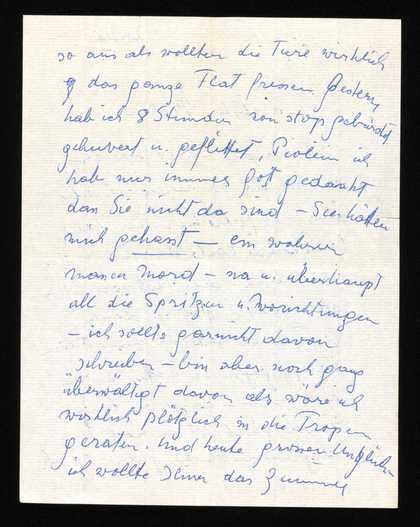 so aus als wollten die Tiere wirklich
das ganze Flat fressen. Gestern
hab ich 8 Stunden non stop gebürstet
gehuvert u. geflittet, ich
hab nur immer gott gedankt
dass Sie nicht da sind – Sie hätten
mich gehasst – ein wahrer
massen Mord – na u. überhaupt
all die Spritzen u. Vorrichtungen
– ich sollte garnicht davon
schreiben – bin aber noch ganz
überwältigt davon als wäre ich
wirklich plötzlich in die Tropen
geraten. Und heute grosses Unglück –
ich wollte Ihnen das